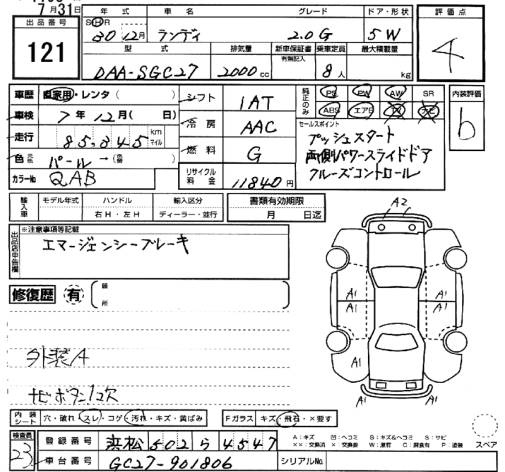 7月31日
出品番号 121
年式 SH 30年12月
車名 ランディ
グレード 2.0G
ドア・形状 5W
評価点 4
型式 DAA-SGC27
排気量 2000cc
新車保証書 有無記入
乗車定員 8人
最大積載量 kg
車歴 自家用・レンタ( )
車検 7年12月( 日)
走行 85,345 km マイル
色 パール→
カラーNo QAB
シフト 1AT
冷房 AAC
燃料 G
リサイクル料金 11840円
純正のみ PS PW AW SR
ABS エアB
内装評価 b
セールスポイント
プッシュスタート
両側パワースライドドア
クルーズコントロール
輸入車 モデル年式 ハンドル 右H・左H 輸入区分 ディーラー・並行
書類有効期限 月 日迄
出品店申告欄 ※注意事項等記載
エマージェンシーブレーキ
修復歴 有 箇所
外装A
ナビボタン1欠
A2
A1 A1
A1 A1
内装シート 穴・破れ スレ・コゲ 汚れ・キズ・黄ばみ
Fガラス キズ 飛石・×要す
検査員 23
登録番号 浜松 502 ら 4547
車台番号 GC27-901806
シリアルNo
A:キズ U:ヘコミ B:キズ&ヘコミ S:サビ
××:交換済 ×:交換跡 W:波打 C:腐食有 P:塗装
スペア